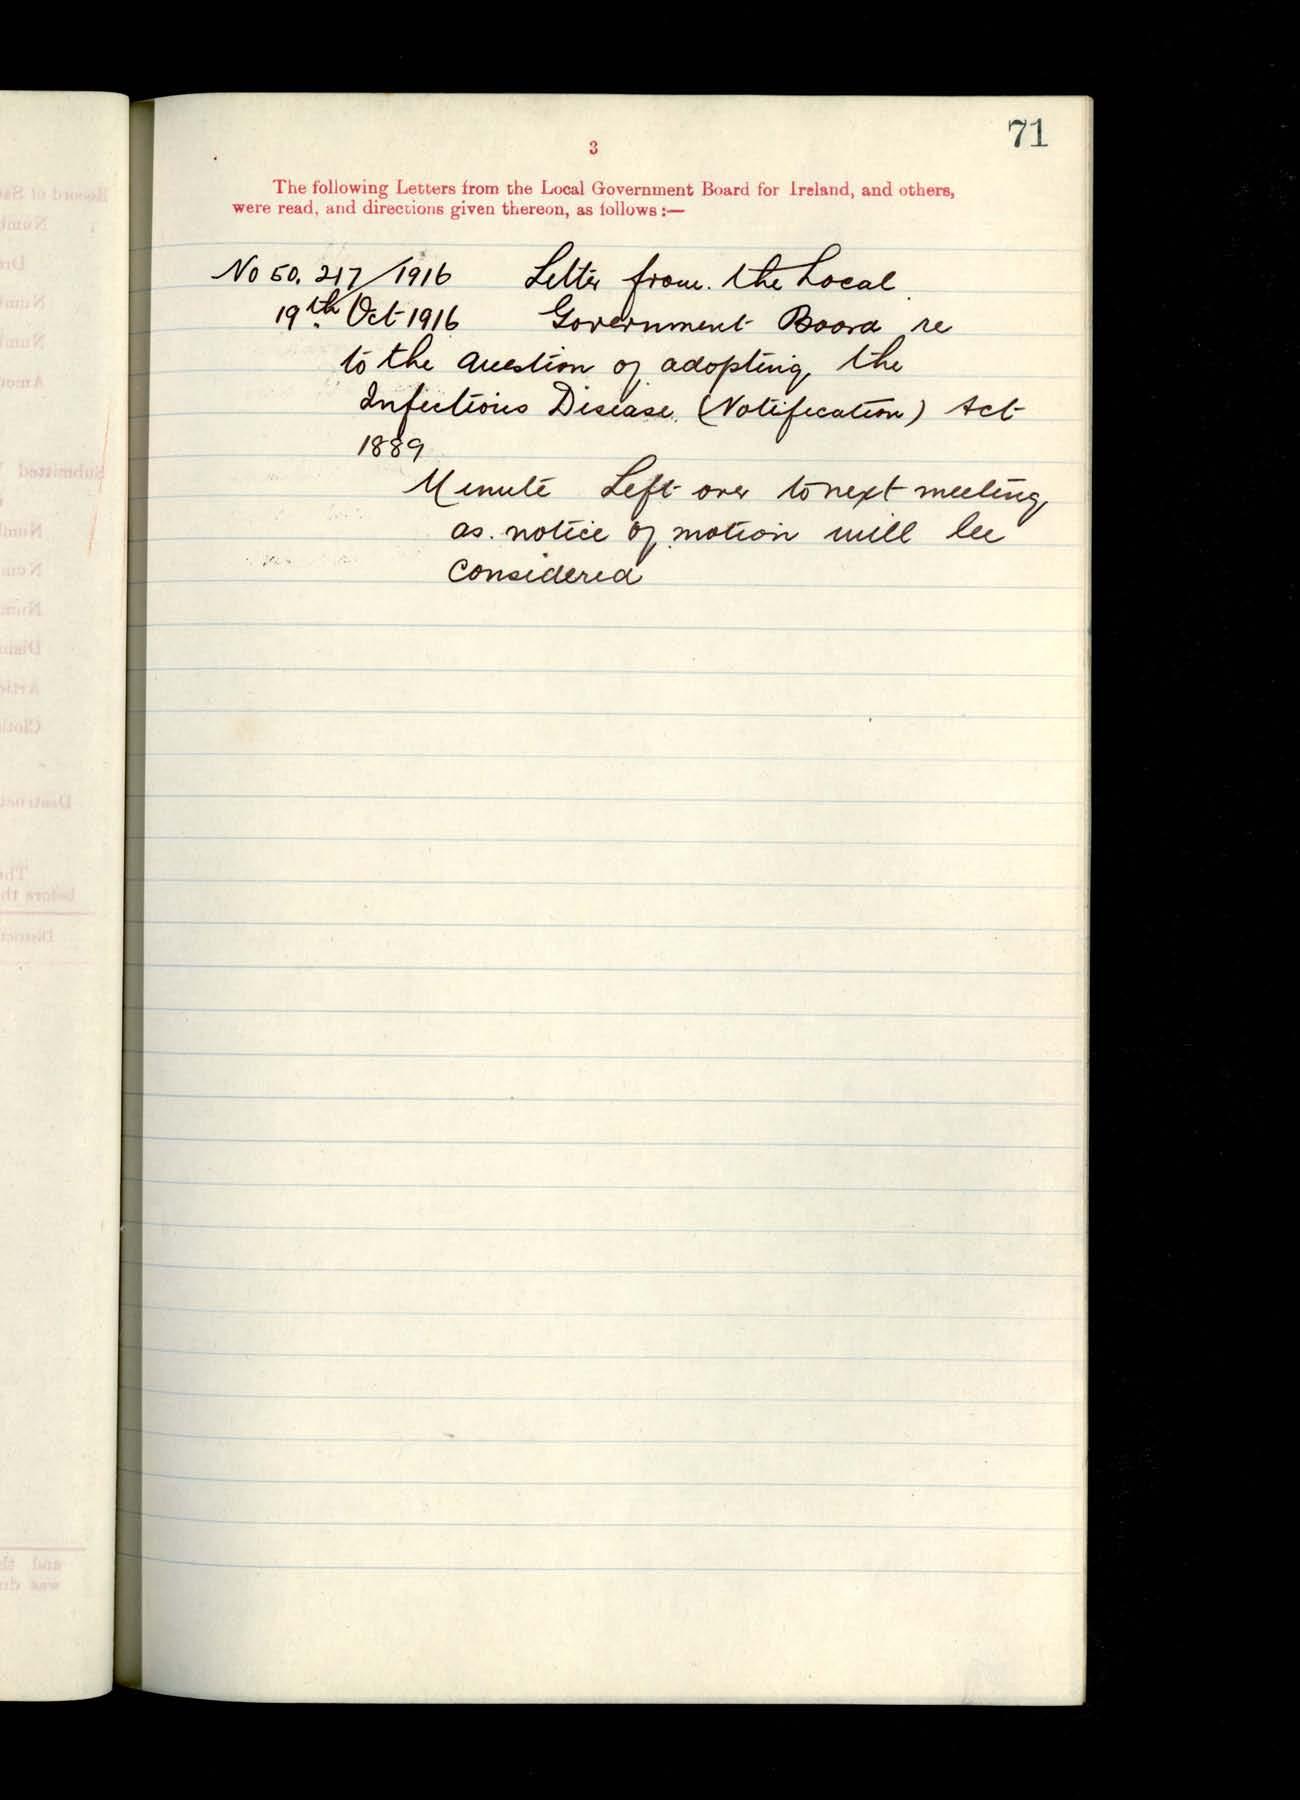 71
3
The following Letters from the Local Government Board for Ireland, and others,
were read, and directions given thereon, as follows :—
No 50,217/1916 Letter from the Local
19th Oct 1916 Government Board re
to the question of adopting the
Infectious Disease (Notification) Act
1889
Minute Left over to next meeting
as notice of motion will be
considered
Record of
Num
Num
Num
Submitted
Num
Num
Num
Artic
before th
District
and th